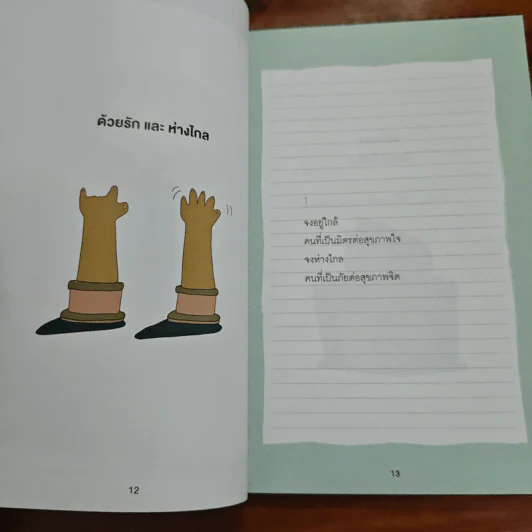 ด้วยรัก และ ห่างไกล
12
จงอยู่ใกล้
คนที่เป็นมิตรต่อสุขภาพใจ
จงห่างไกล
คนที่เป็นภัยต่อสุขภาพจิต
13